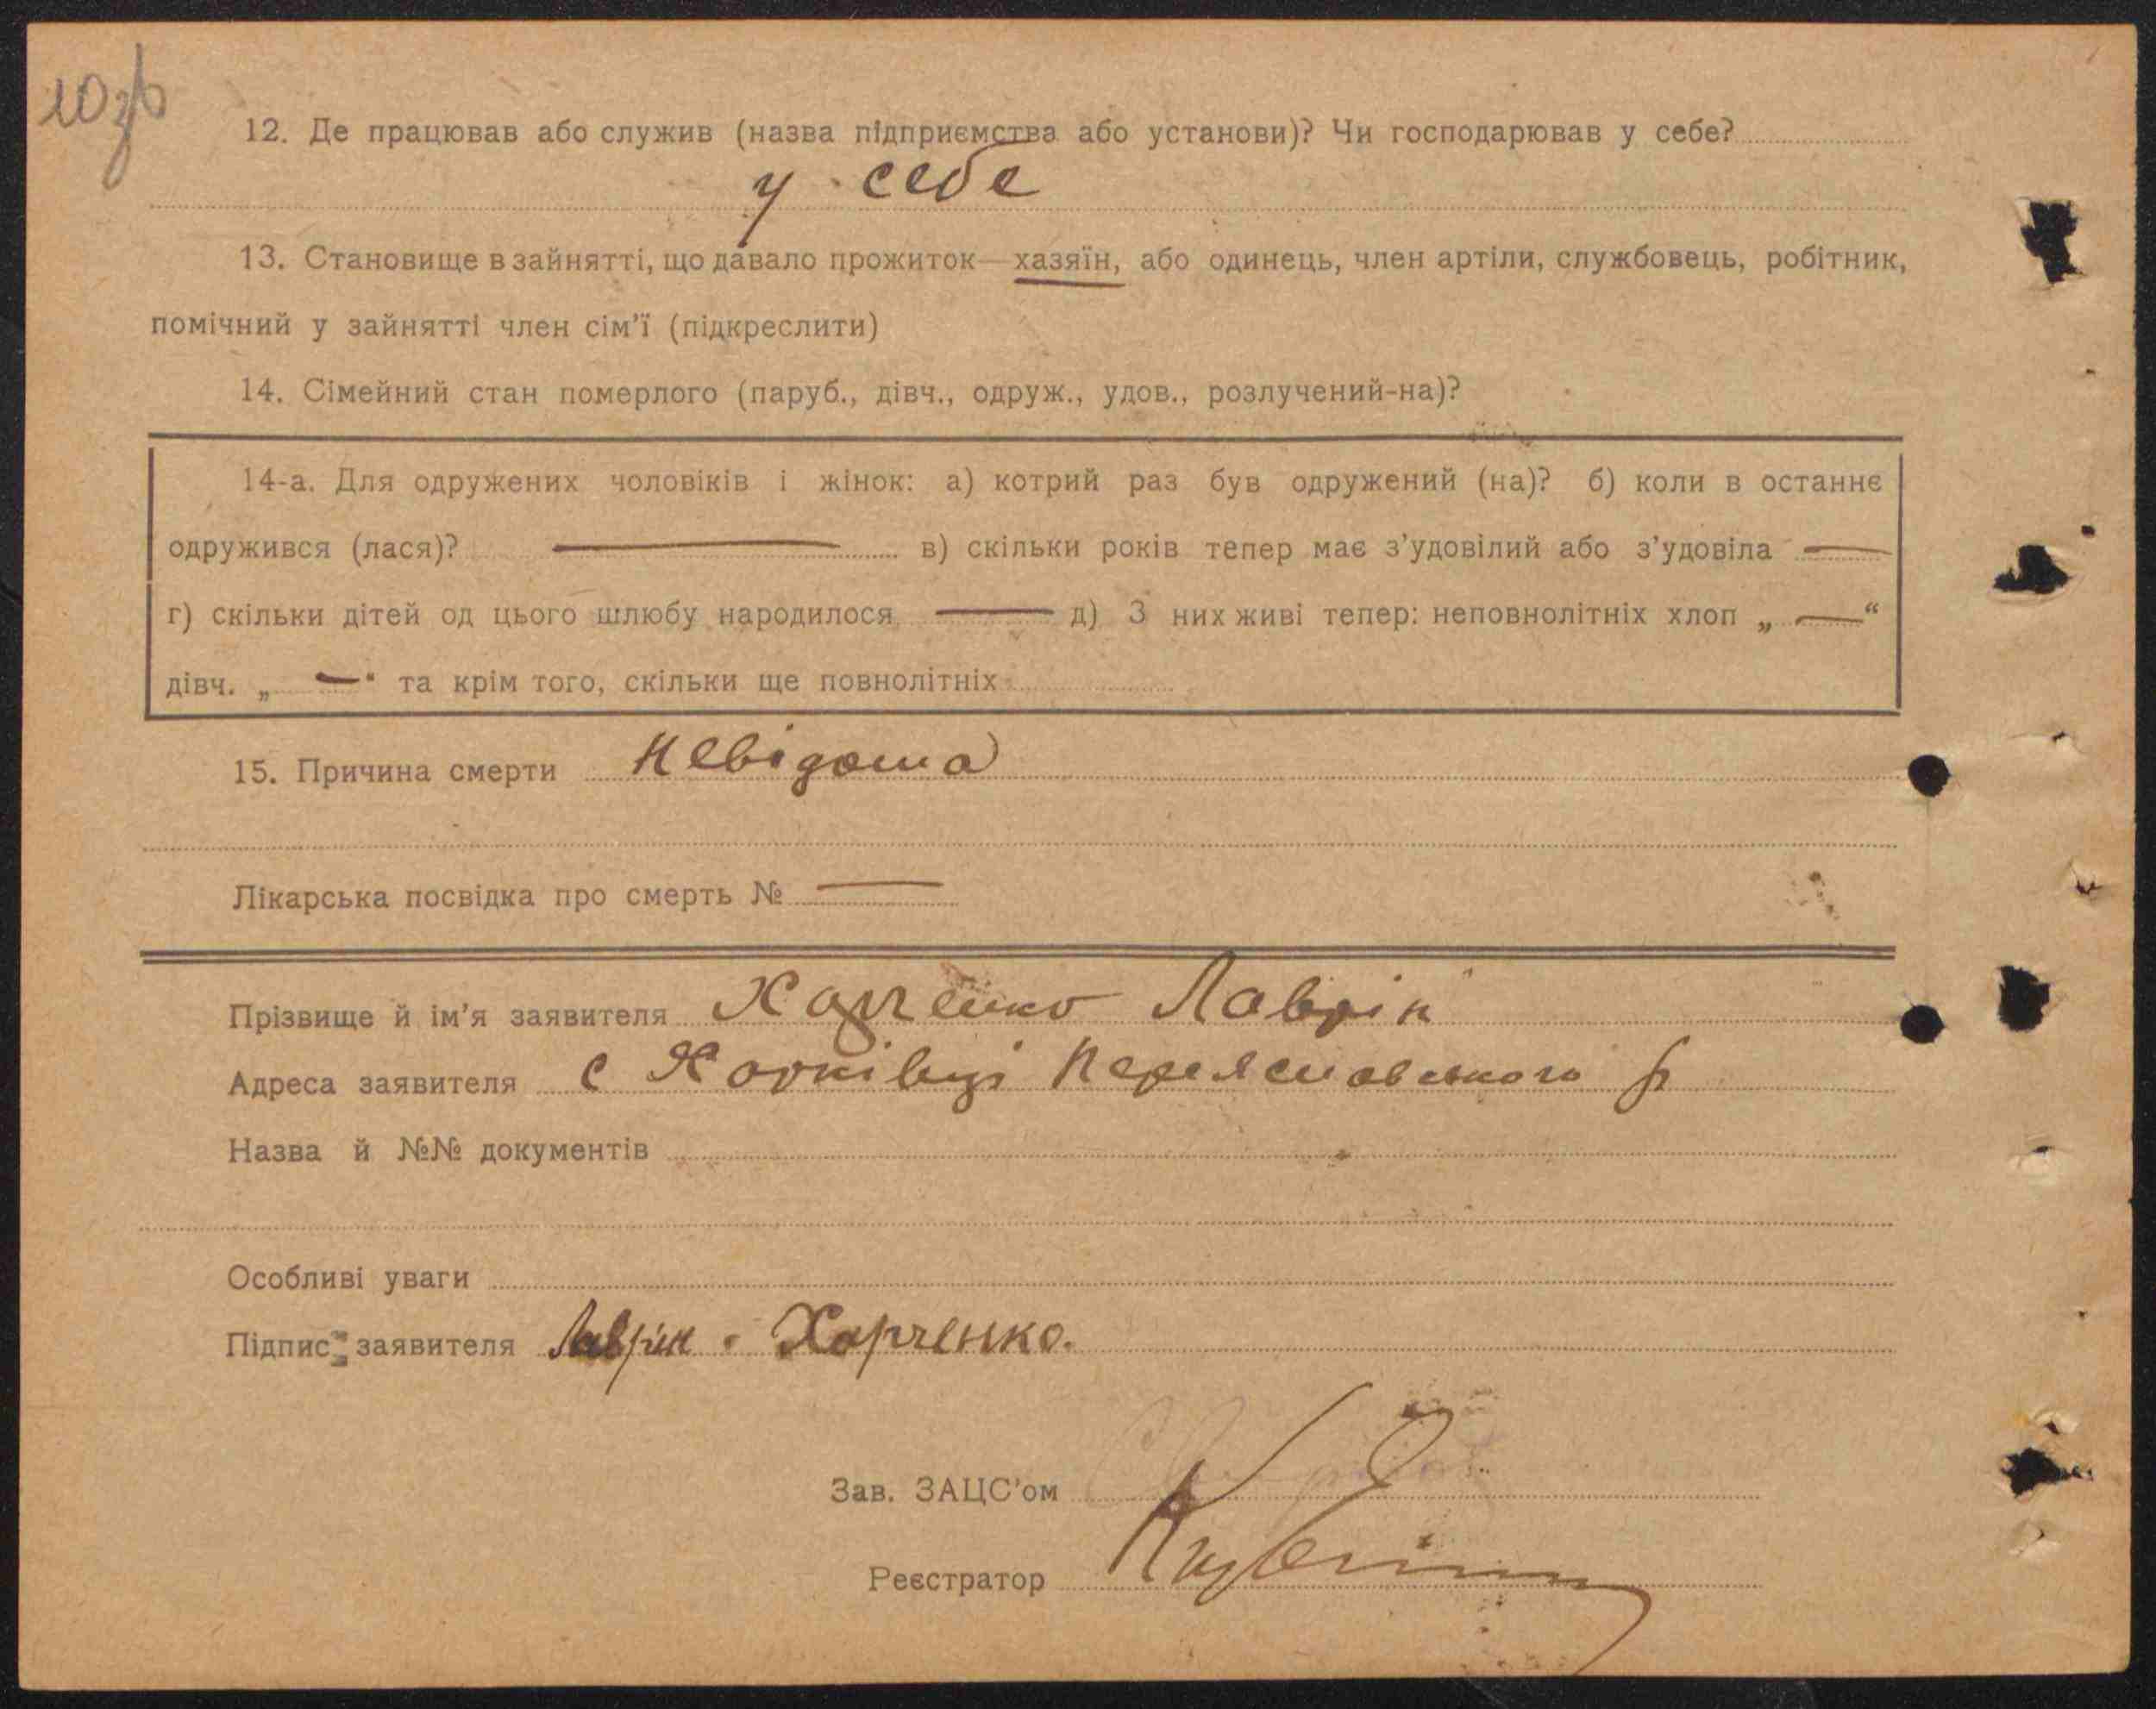 12. Де працював або служив (назва підприємства або установи)? Чи господарював у себе?
у себе
13. Становище в зайнятті, що давало прожиток—хазяїн, або одинець, член артіли, службовець, робітник,
помічний у зайнятті член сім’ї (підкреслити)
14. Сімейний стан померлого (паруб., дівч., одруж., удов., розлучений-на)?
14-а. Для одружених чоловіків і жінок: а) котрий раз був одружений (на)? б) коли в останнє
одружився (лася)? — в) скільки років тепер має з’удовілий або з’удовіла —
г) скільки дітей од цього шлюбу народилося — д) З них живі тепер: неповнолітніх хлоп „—“
дівч. „—“ та крім того, скільки ще повнолітніх
15. Причина смерти Невідома
Лікарська посвідка про смерть № —
Прізвище й ім’я заявителя Харченко Лаврін
Адреса заявителя с Харківці Переяславського р
Назва й №№ документів
Особливі уваги
Підпис заявителя Лаврін Харченко.
Зав. ЗАЦС’ом
Реєстратор